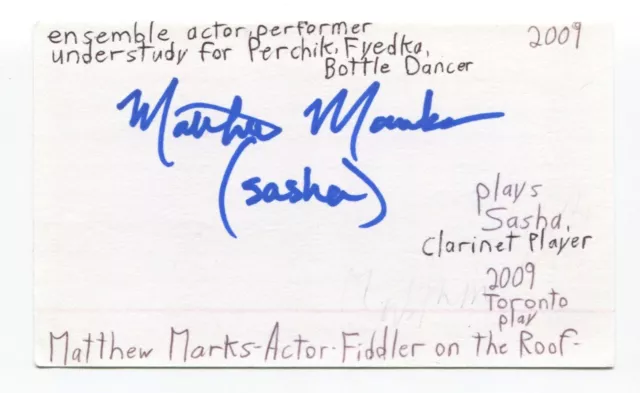 ensemble actor, performer
2009
understudy for Perchik, Fyedka,
Bottle Dancer
Matthew Marks
(sasha)
plays
Sasha,
Clarinet Player
2009
Toronto
play
Matthew Marks-Actor-Fiddler on the Roof-